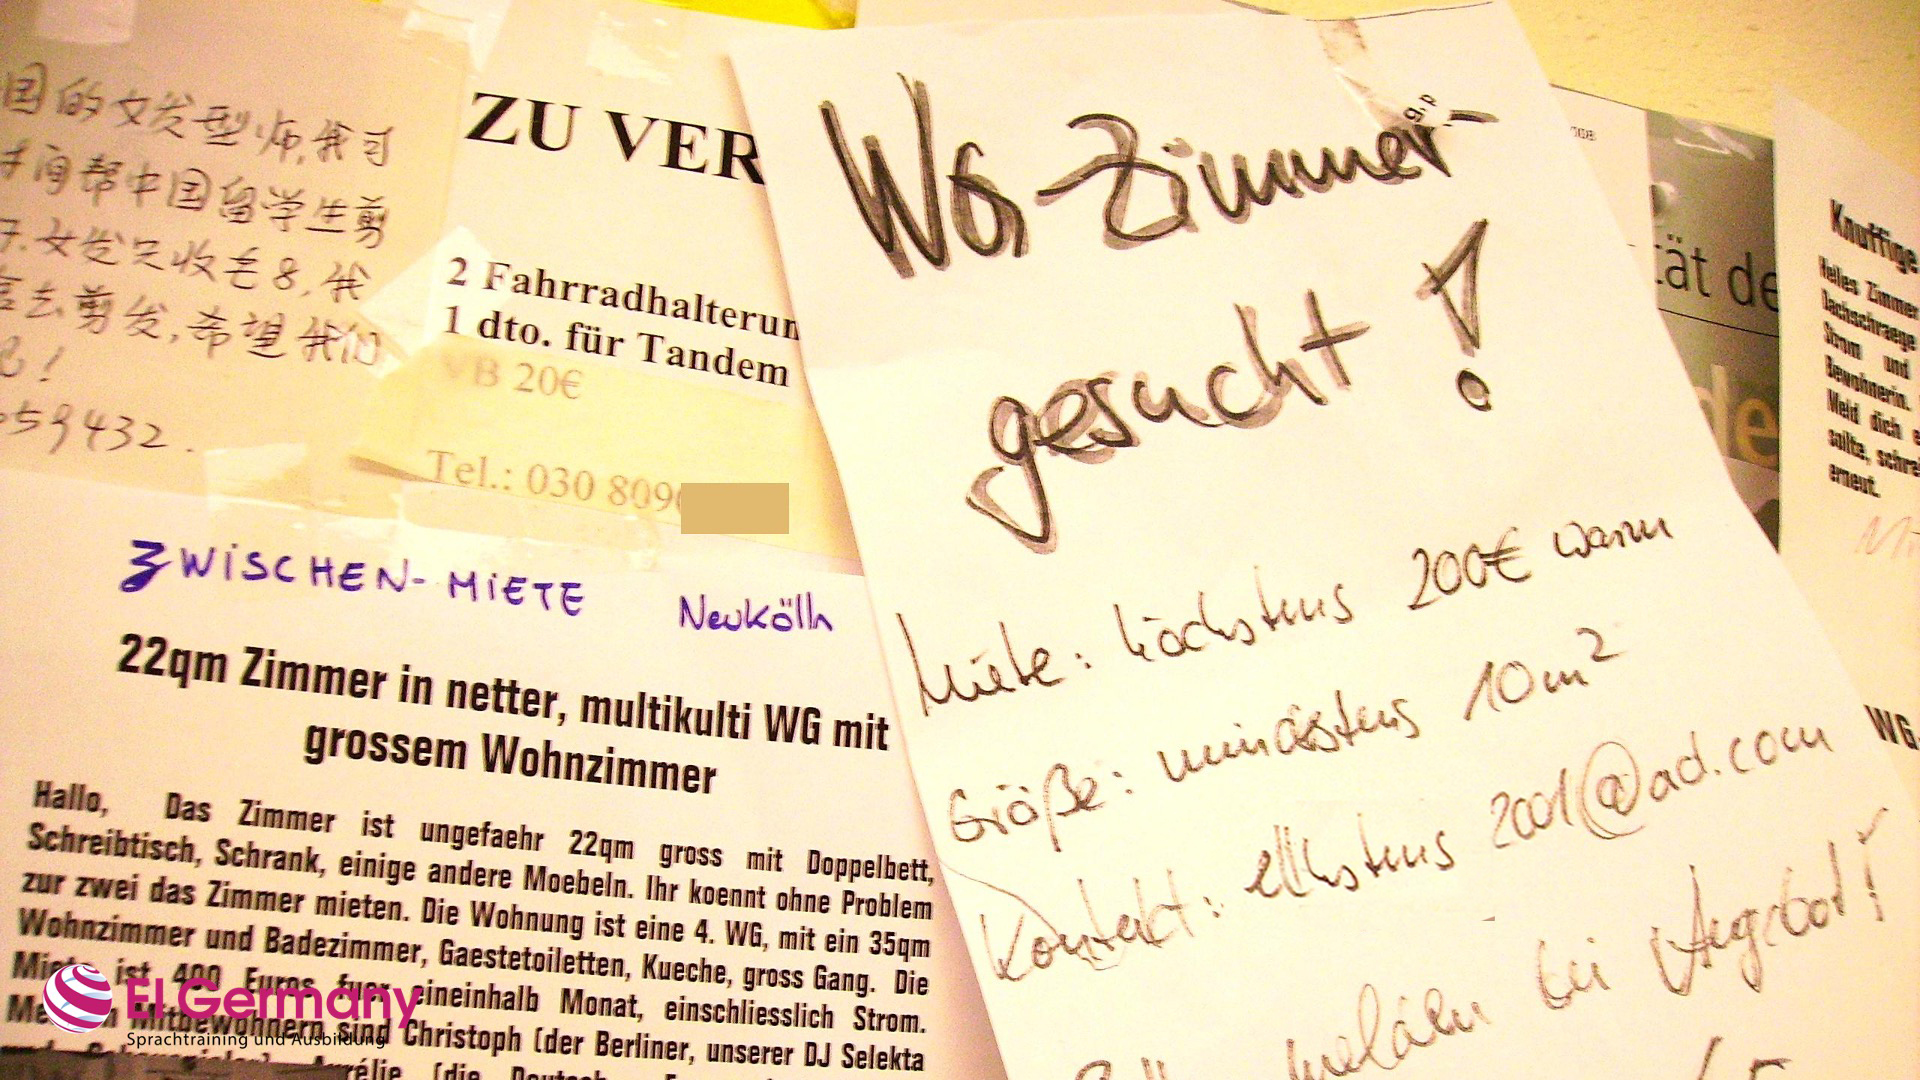 国的女发型师,我可
间帮中国留学生剪
女发只收毛8,我
去剪发,希望我们
吧!
59432.
ZU VER
2 Fahrradhalterun
1 dto. für Tandem
VB 20€
Tel.: 030 809
ZWISCHEN-MIETE Neukölln
22qm Zimmer in netter, multikulti WG mit
grossem Wohnzimmer
Hallo, Das Zimmer ist ungefaehr 22qm gross mit Doppelbett,
Schreibtisch, Schrank, einige andere Moebeln. Ihr koennt ohne Problem
zur zwei das Zimmer mieten. Die Wohnung ist eine 4. WG, mit ein 35qm
Wohnzimmer und Badezimmer, Gaestetoiletten, Kueche, gross Gang. Die
Miete ist 400 Euros fuer eineinhalb Monat, einschliesslich Strom.
Mitbewohnern sind Christoph (der Berliner, unserer DJ Selekta
(die
WG-Zimmer
gesucht!
Miete: höchstens 200€ warm
Größe: mindestens 10m²
Kontakt: 2001@ad.com
melden bei Angebot!
tät de
de
Knuffige
Helles Zimmer
Dachschraege
Strom und
Bewohnerin.
Meld dich
sollte, schrei
erneut.
WG
EI Germany
Sprachtraining und Ausbildung